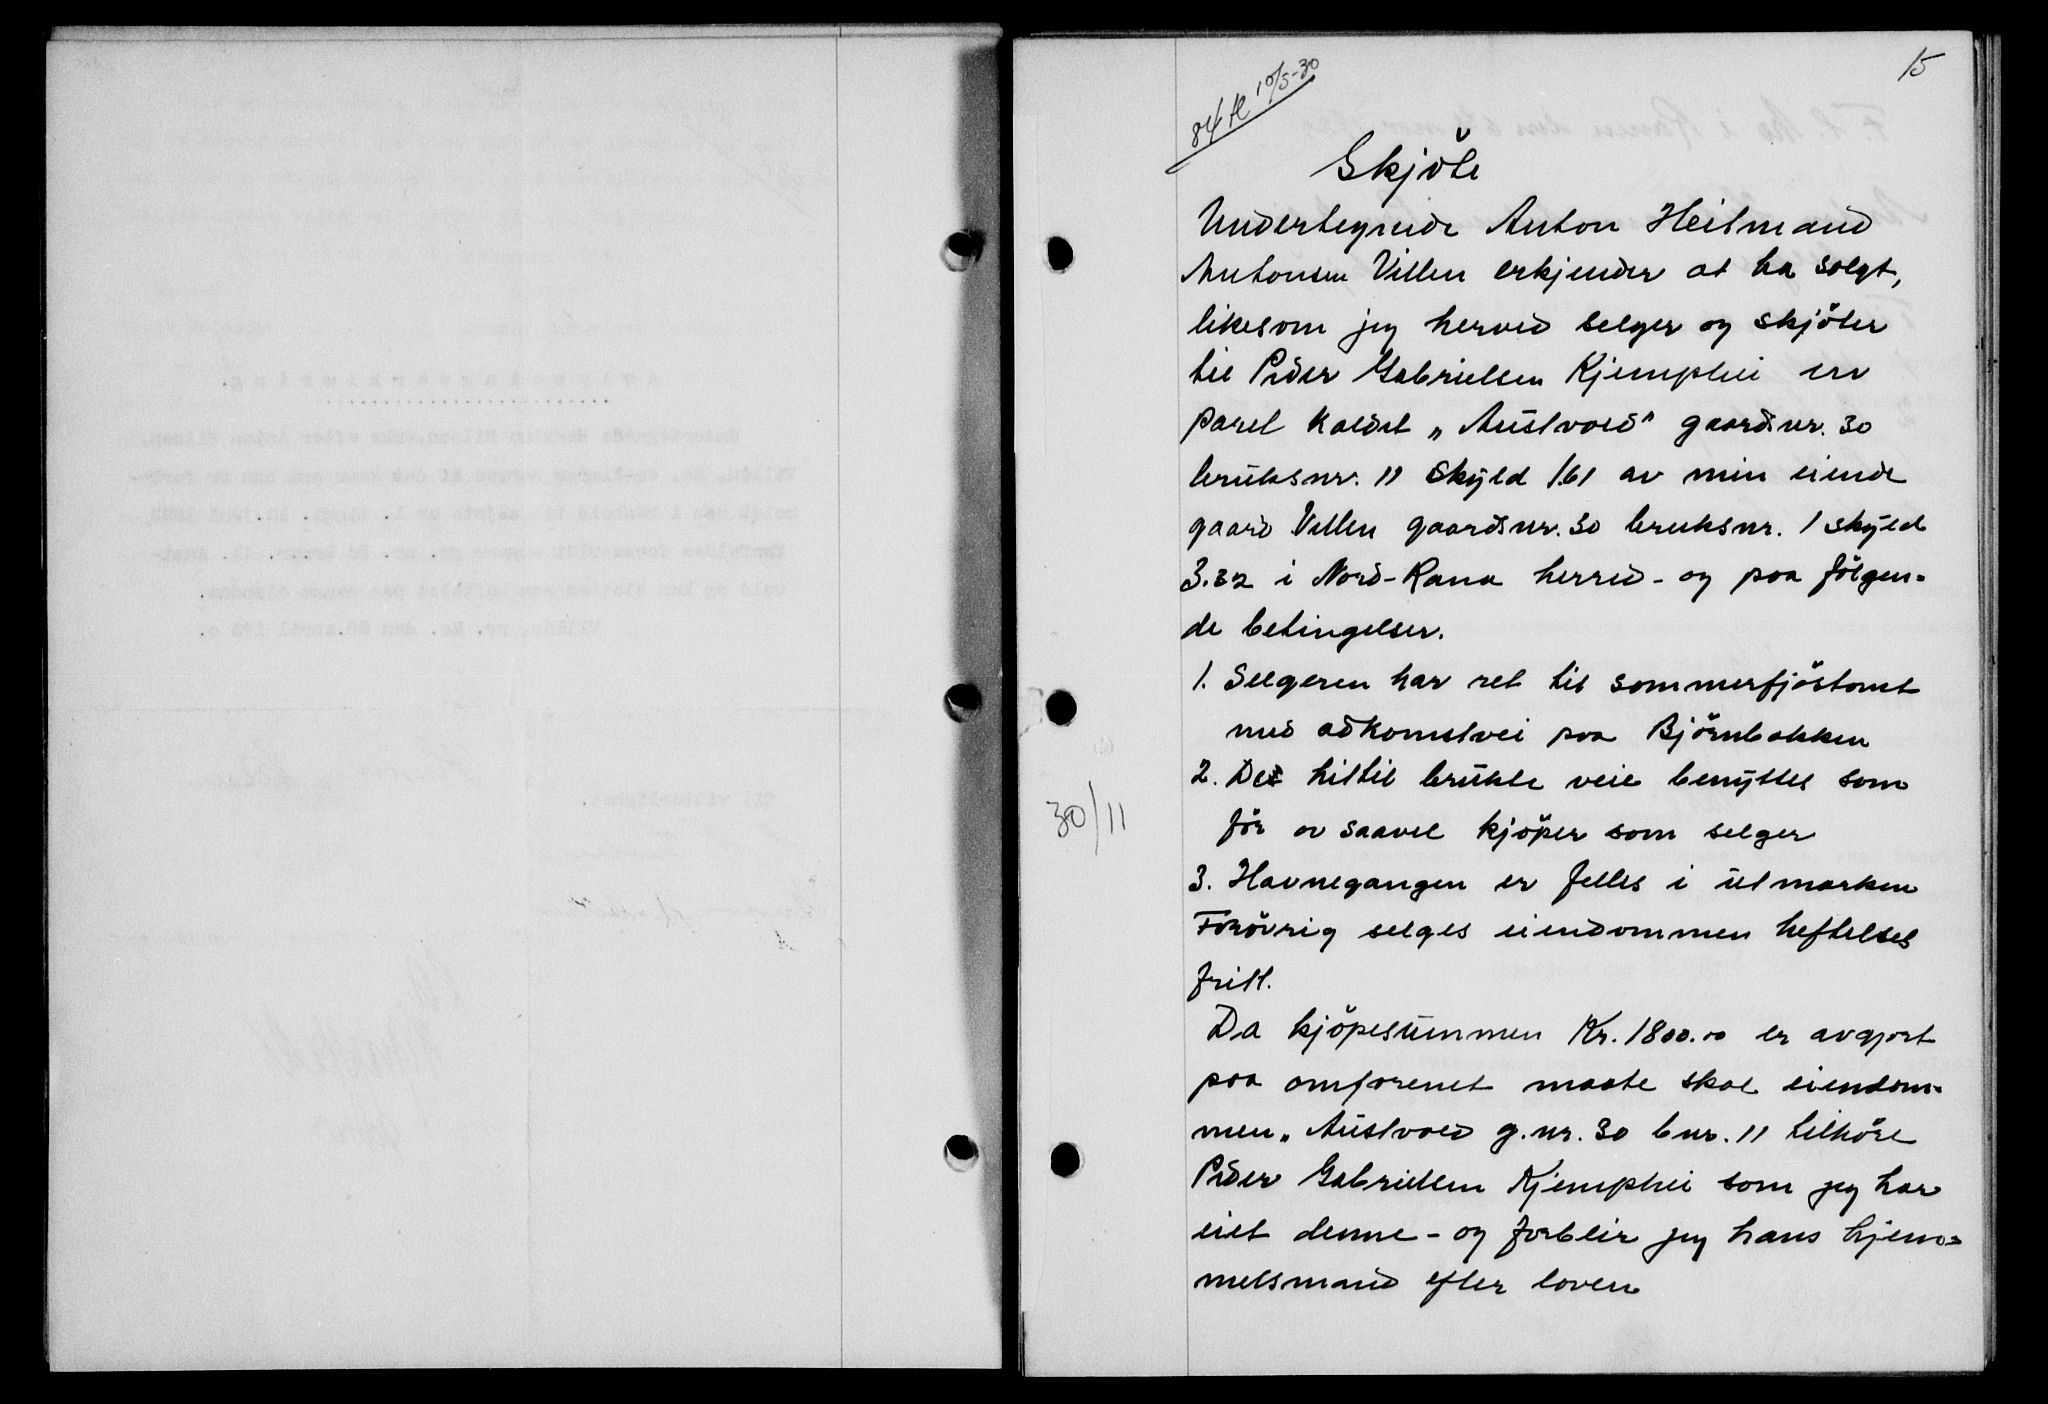 15
84 H 10/5-30
Skjöte
Undertegnede Anton Heilmand
Antonsen Villen erkjender at ha solgt,
likesom jeg herved selger og skjöter
til Peder Gabrielsen Kjemphei en
parcel kaldet „Austvold" gaardsnr. 30
bruksnr. 11 skyld 1.61 av min eiende
gaard Villen gaardsnr. 30 bruksnr. 1 skyld
3.32 i Nord-Rana herred - og paa fölgen-
de betingelser.
1. Selgeren har ret til sommerfjöstomt
med adkomstvei paa Björnbakken
2. De hittil brukte veie benyttes som
för av saavel kjöper som selger
3. Havnegangen er felles i utmarken
Forövrig selges eiendommen heftelses
fritt.
30/11
Da kjöpesummen Kr. 1800.00 er avgjort
paa omforenet maate skal eiendom-
men „Austvold g.nr. 30 bnr. 11 tilhöre
Peder Gabrielsen Kjemphei som jeg har
eiet denne - og forblir jeg hans hjem-
melsmand efter loven